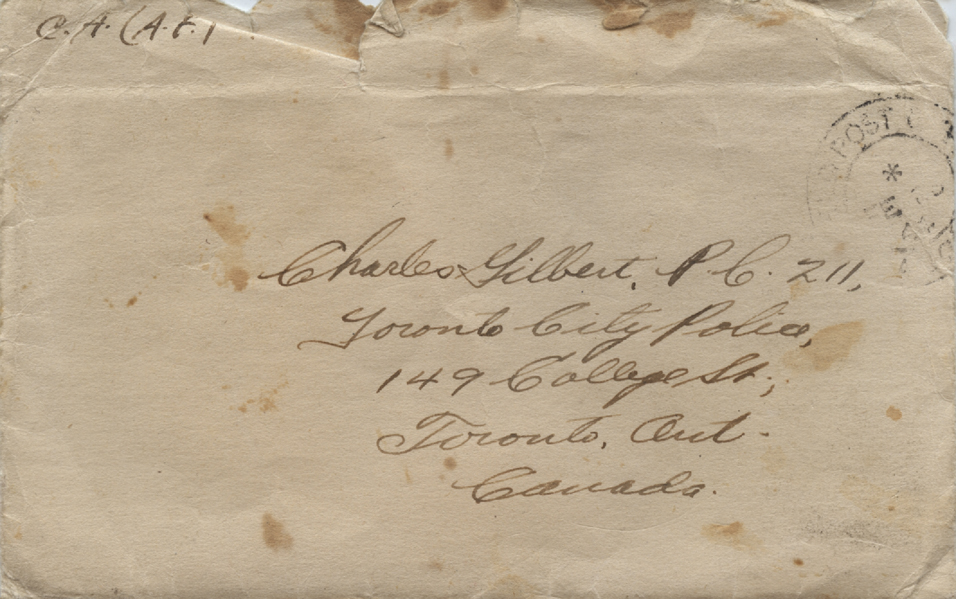 C.A. (A.F.)
POST
Charles Gilbert, P.C. 211,
Toronto City Police,
149 College St.,
Toronto, Ont.
Canada.